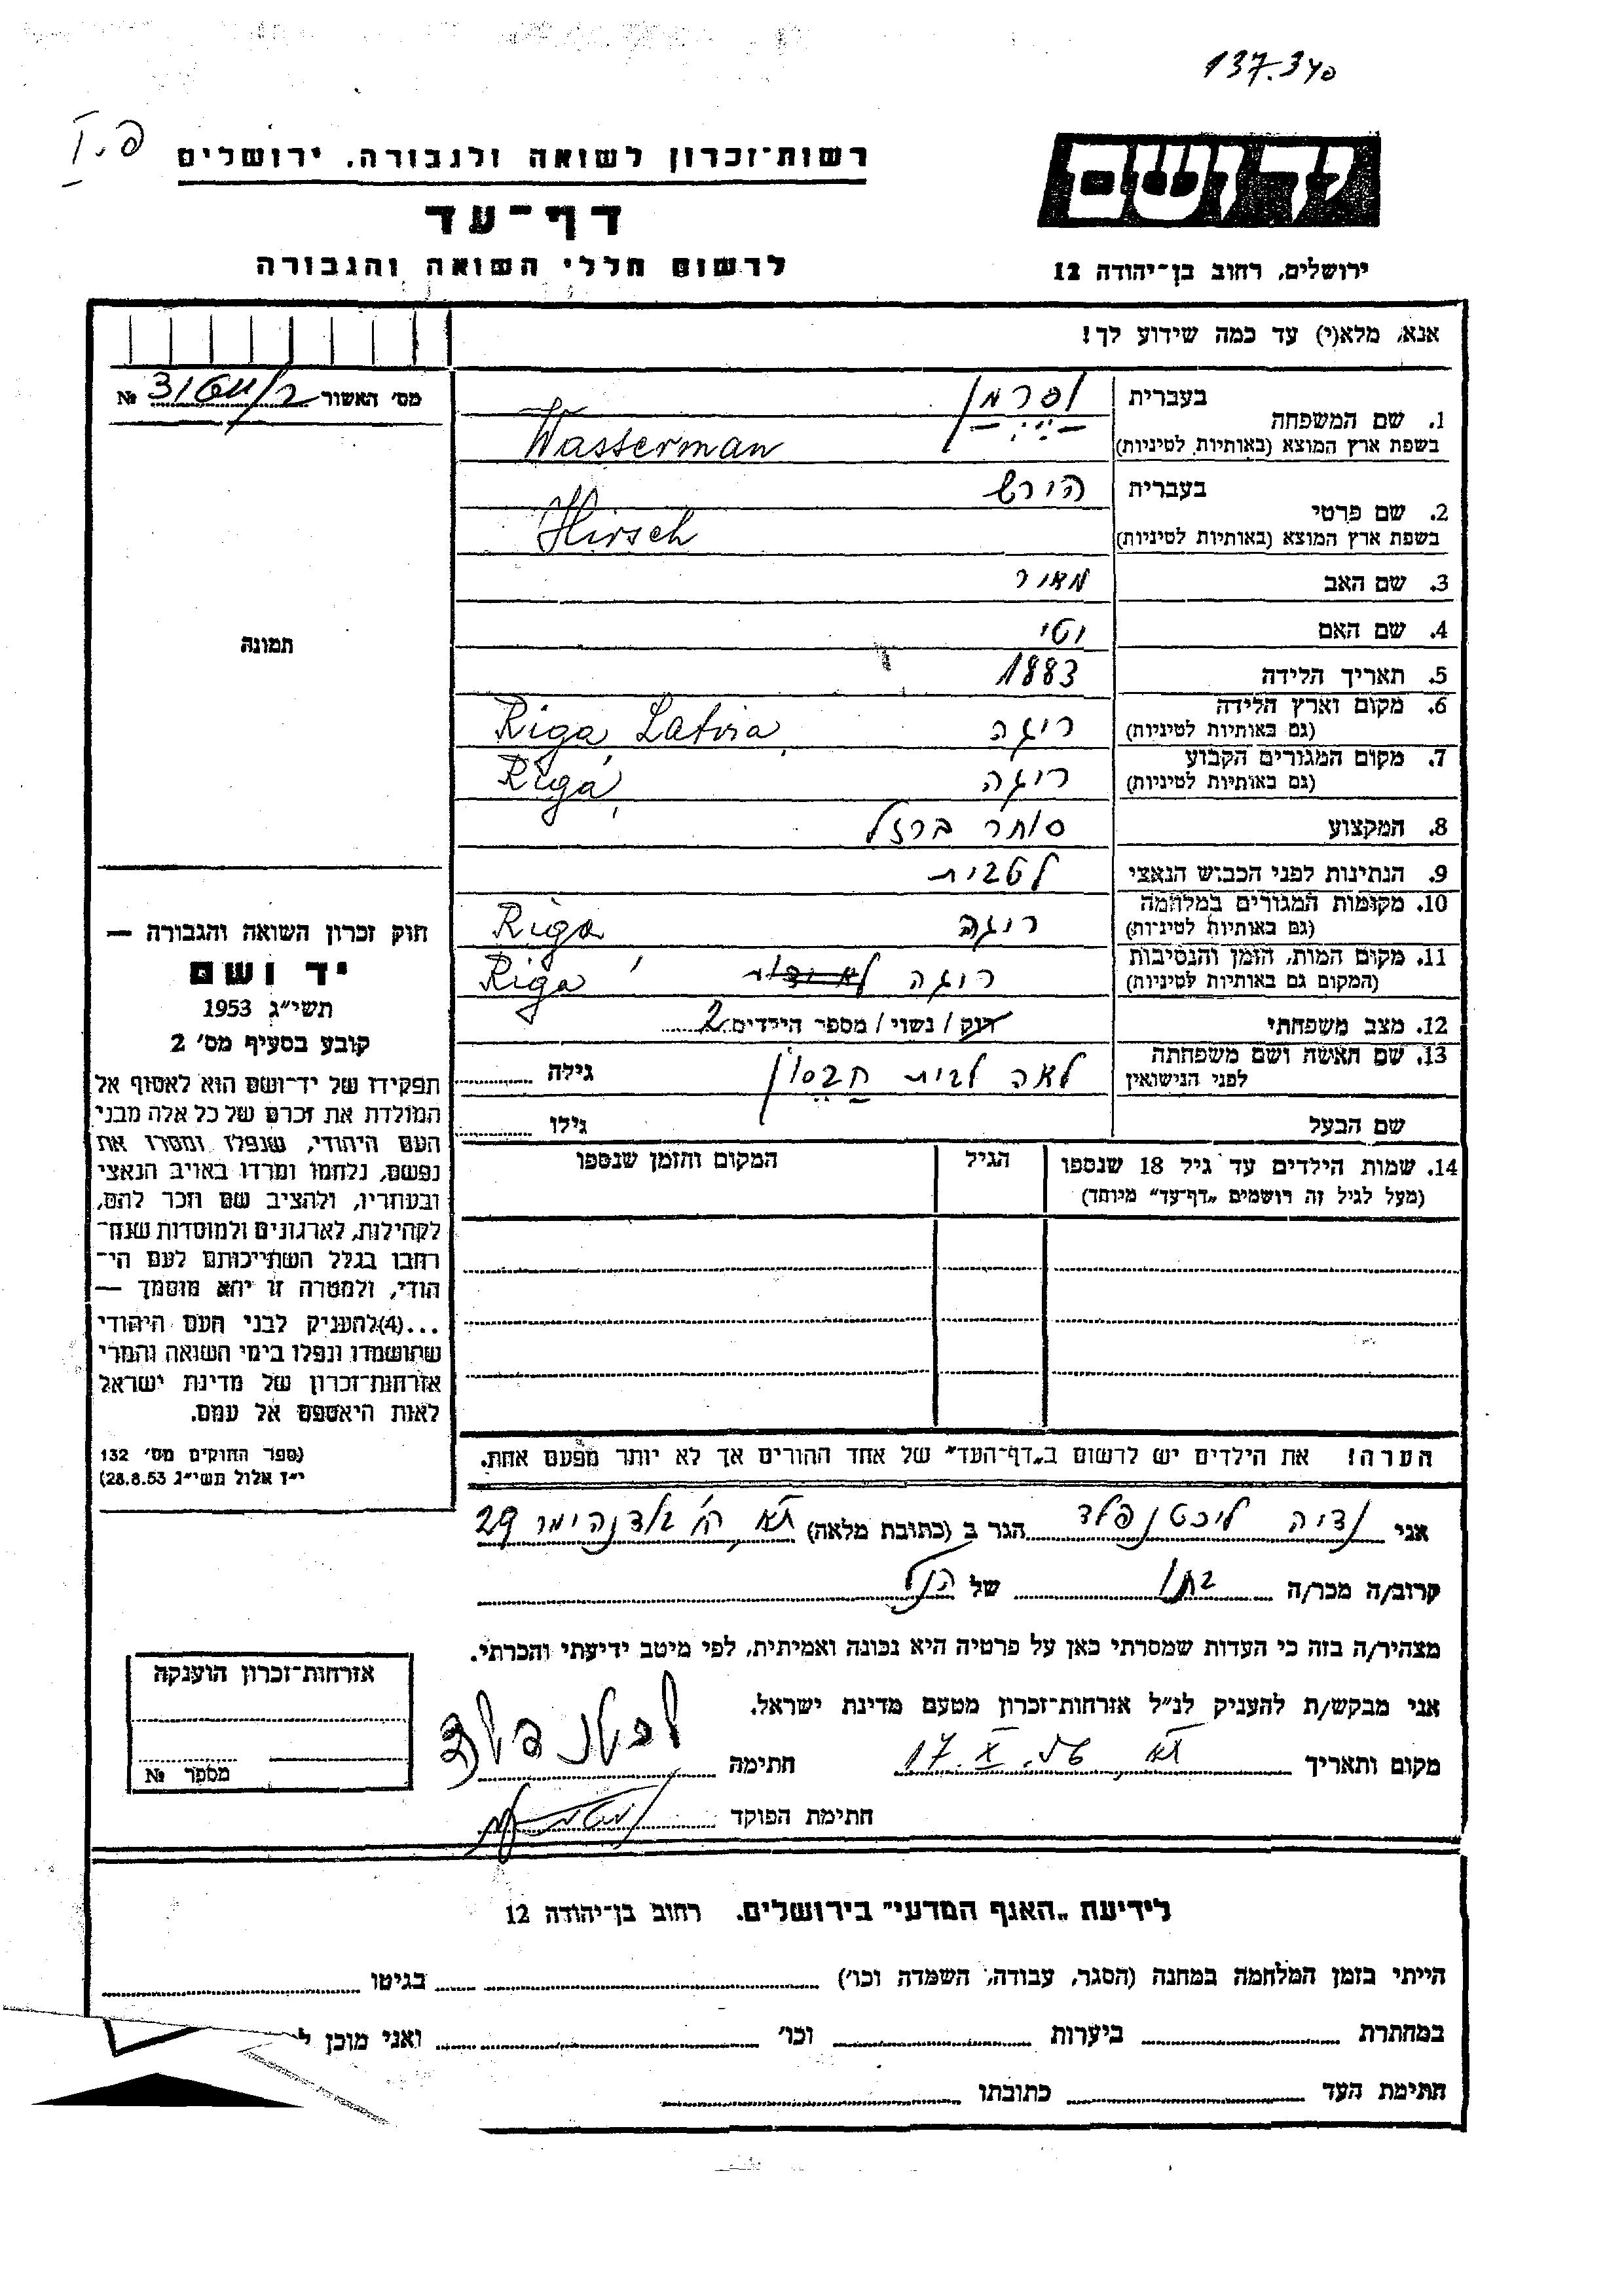 137.340
פ.I
רשות־זכרון לשואה ולגבורה, ירושלים
דף־עד
לרשום חללי השואה והגבורה
יד ושם
ירושלים, רחוב בן־יהודה 12
אנא, מלא(י) עד כמה שידוע לך!
מס׳ האשור
№
1. שם המשפחה
בעברית וסרמן
בשפת ארץ המוצא (באותיות לטיניות) Wasserman
2. שם פרטי
בעברית הירש
בשפת ארץ המוצא (באותיות לטיניות) Hirsch
3. שם האב מאיר
4. שם האם יטי
5. תאריך הלידה 1883
6. מקום וארץ הלידה
(גם באותיות לטיניות) ריגה Riga, Latvia
7. מקום המגורים הקבוע
(גם באותיות לטיניות) ריגה Riga,
8. המקצוע סוחר ברזל
9. הנתינות לפני הכבוש הנאצי לטבית
10. מקומות המגורים במלחמה
(גם באותיות לטיניות) ריגה Riga
11. מקום המות, הזמן והנסיבות
(המקום גם באותיות לטיניות) ריגה Riga
12. מצב משפחתי רוק / נשוי / מספר הילדים 2
13. שם האשה ושם משפחתה
לפני הנישואין לאה לבית גילה
שם הבעל גילו
14. שמות הילדים עד גיל 18 שנספו הגיל המקום והזמן שנספו
(מעל לגיל זה רושמים „דף־עד״ מיוחד)
הערה! את הילדים יש לרשום ב„דף־העד״ של אחד ההורים אך לא יותר מפעם אחת.
תמונה
חוק זכרון השואה והגבורה —
יד ושם
תשי״ג 1953
קובע בסעיף מס׳ 2
תפקידו של יד־ושם הוא לאסוף אל
המולדת את זכרם של כל אלה מבני
העם היהודי, שנפלו ומסרו את
נפשם, נלחמו ומרדו באויב הנאצי
ובעוזריו, ולהציב שם וזכר להם,
לקהילות, לארגונים ולמוסדות שנח־
רחבו בגלל השתייכותם לעם הי־
הודי, ולמטרה זו יהא מוסמך —
...(4) להעניק לבני העם היהודי
שהושמדו ונפלו בימי השואה והמרי
אזרחות־זכרון של מדינת ישראל
לאות היאספם אל עמם.
(ספר החוקים מס׳ 132
י״ז אלול תשי״ג 28.8.53)
אני נדיה ליכטנפלד הגר ב (כתובת מלאה) תא 29
קרוב/ה מכר/ה בתו של הנ״ל
מצהיר/ה בזה כי העדות שמסרתי כאן על פרטיה היא נכונה ואמיתית, לפי מיטב ידיעתי והכרתי.
אני מבקש/ת להעניק לנ״ל אזרחות־זכרון מטעם מדינת ישראל.
מקום ותאריך תא 17.X.56 חתימה
חתימת הפוקד
אזרחות־זכרון הוענקה
מספר №
לידיעת „האגף המדעי״ בירושלים. רחוב בן־יהודה 12
הייתי בזמן המלחמה במחנה (הסגר, עבודה, השמדה וכו׳) בגיטו
במחתרת ביערות וכו׳ ואני מוכן ל
חתימת העד כתובתו